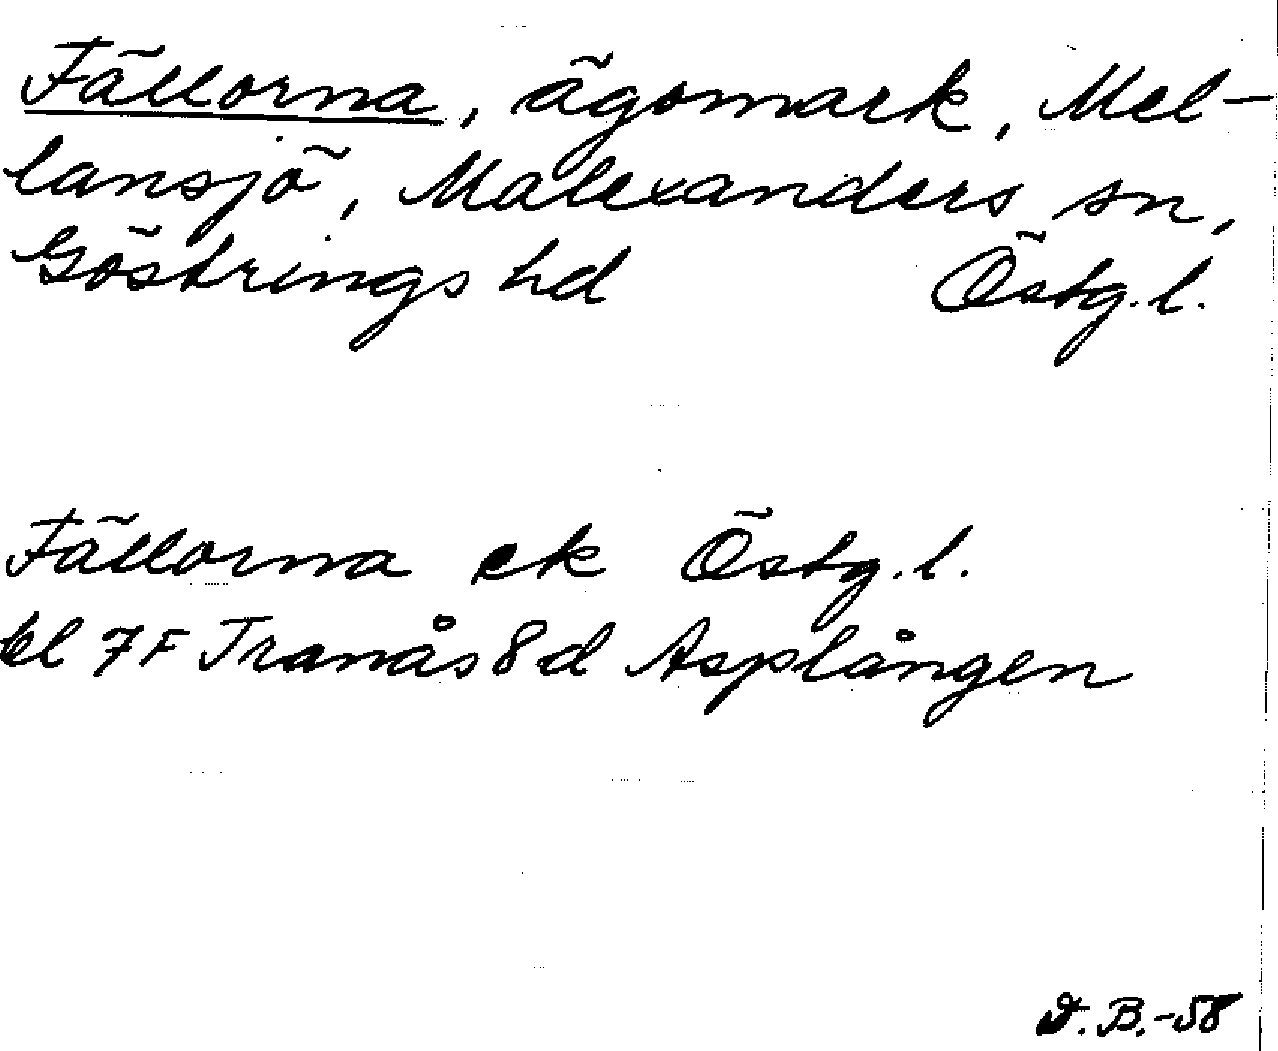 Fällorna, ägomark, Mel-
lansjö, Malexanders sn,
Göstrings hd Östg.l.
Fällorna ek Östg.l.
bl 7F Tranås 8d Asplången
B.-58